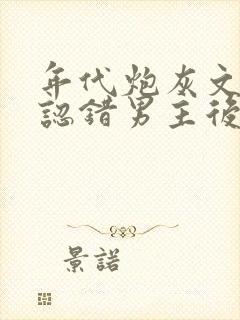 年代炮灰文
認錯男主後
景諾